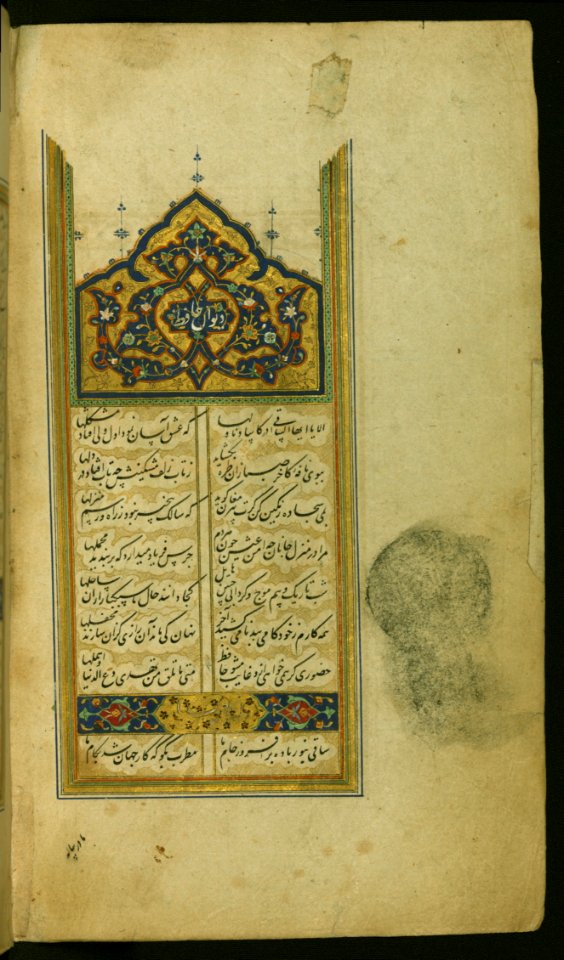 دیوان حافظ
الا یا ایها الساقی ادر کاسا و ناولها که عشق آسان نمود اول ولی افتاد مشکلها
ببوی نافه کاخر صبا زان طره بگشاید ز تاب زلف مشکینش چه تاب افتاد در دلها
بمی سجاده رنگین کن گرت پیر مغان گوید که سالک بیخبر نبود ز راه و رسم منزلها
مرا در منزل جانان چه امن عیش چون هردم جرس فریاد میدارد که بربندید محملها
شب تاریک و بیم موج و گردابی چنین هایل کجا دانند حال ما سبکباران ساحلها
همه کارم ز خود کامی ببدنامی کشید آخر نهان کی ماند آن رازی کزان سازند محفلها
حضوری گر همی خواهی ازو غایب مشو حافظ متی ما تلق من تهوی دع الدنیا و اهملها
ساقی بنور باده برافروز جام ما مطرب بگو که کار جهان شد بکام ما
ما در پیاله